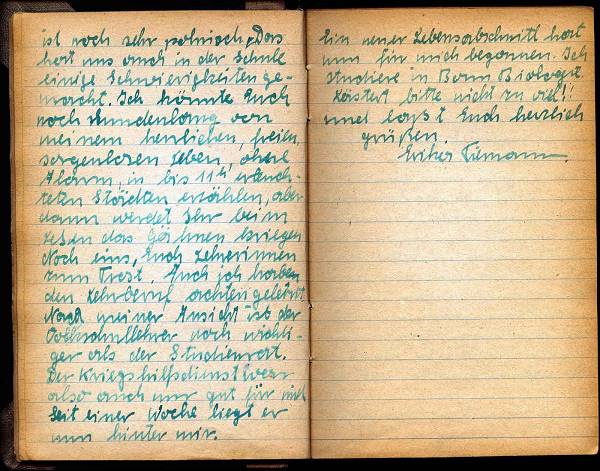 ist noch sehr polnisch. Das
hat uns auch in der Schule
einige Schwierigkeiten ge-
macht. Ich könnte Euch
noch stundenlang von
meinem herrlichen, freien,
sorgenlosen Leben, ohne
Alarm, in bis 11 h erleuch-
teten Städten erzählen, aber
dann werdet Ihr beim
Lesen das Gähnen kriegen
Noch eins, Euch Lehrerinnen
zum Trost. Auch ich habe
den Lehrberuf achten gelernt
Nach meiner Ansicht ist der
Volksschullehrer noch wichti-
ger als der Studienrat.
Der Kriegshilfsdienst war
also auch nur gut für mich
Seit einer Woche liegt er
nun hinter mir.
Ein neuer Lebensabschnitt hat
nun für mich begonnen. Ich
studiere in Bonn Biologie.
Lästert bitte nicht zu viel!!
und laßt Euch herzlich
grüßen.
Erika Tilmann